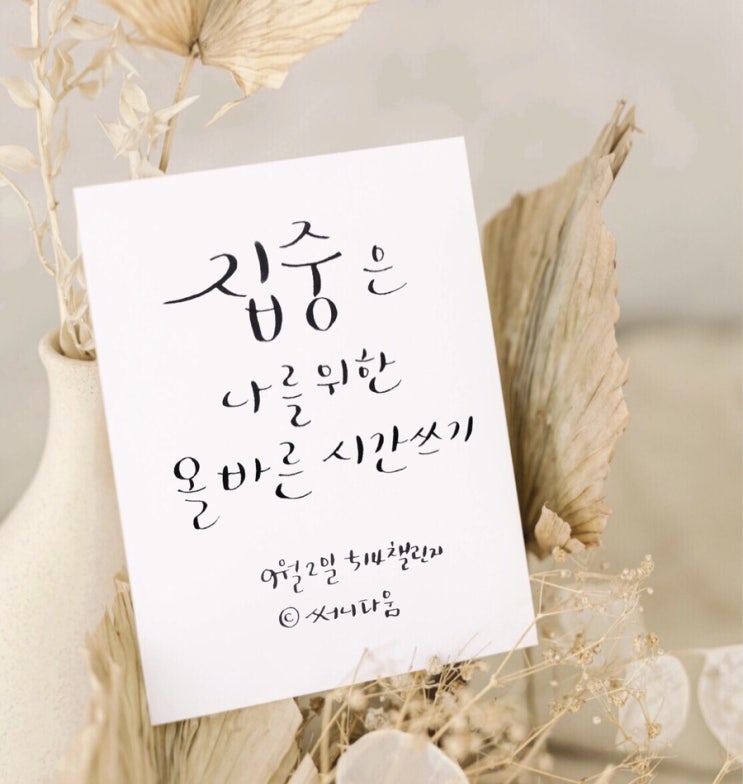 집중은
나를위한
올바른 시간쓰기
9월2일 514챌린지
© 써니다움